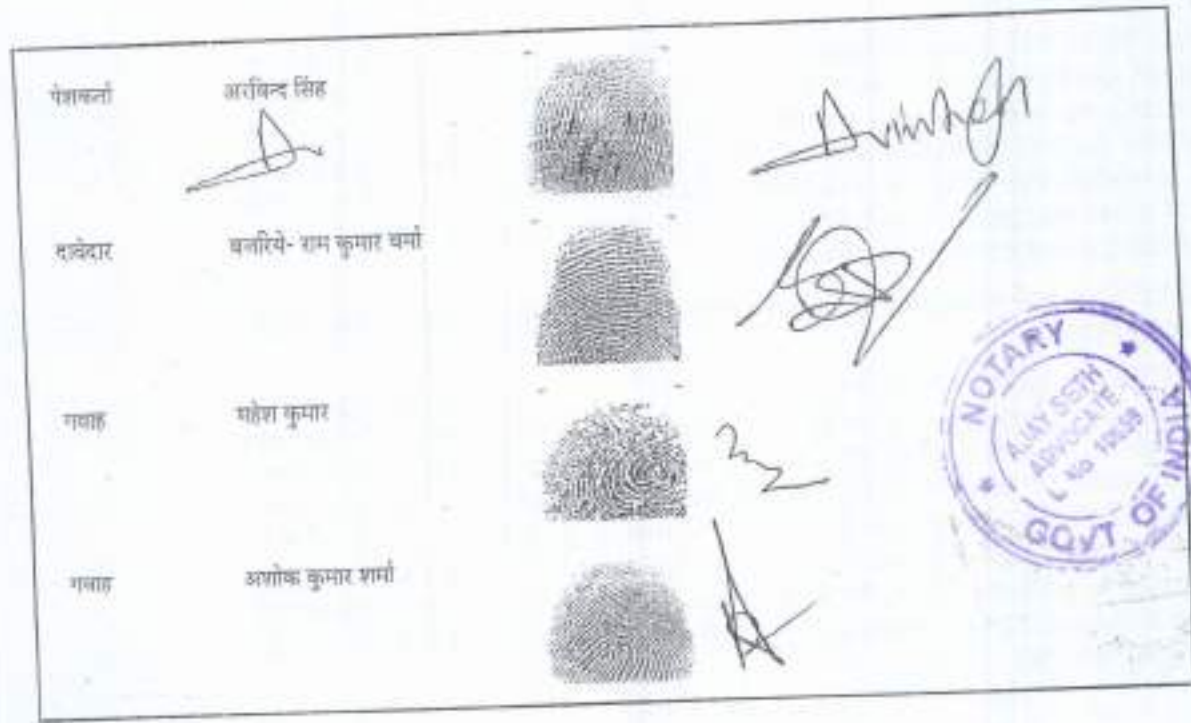 पेशकर्ता अरविन्द सिंह
दावेदार बजरिये- राम कुमार वर्मा
गवाह महेश कुमार
गवाह अशोक कुमार शर्मा
NOTARY
AJAY SETH
ADVOCATE
GOVT OF INDIA